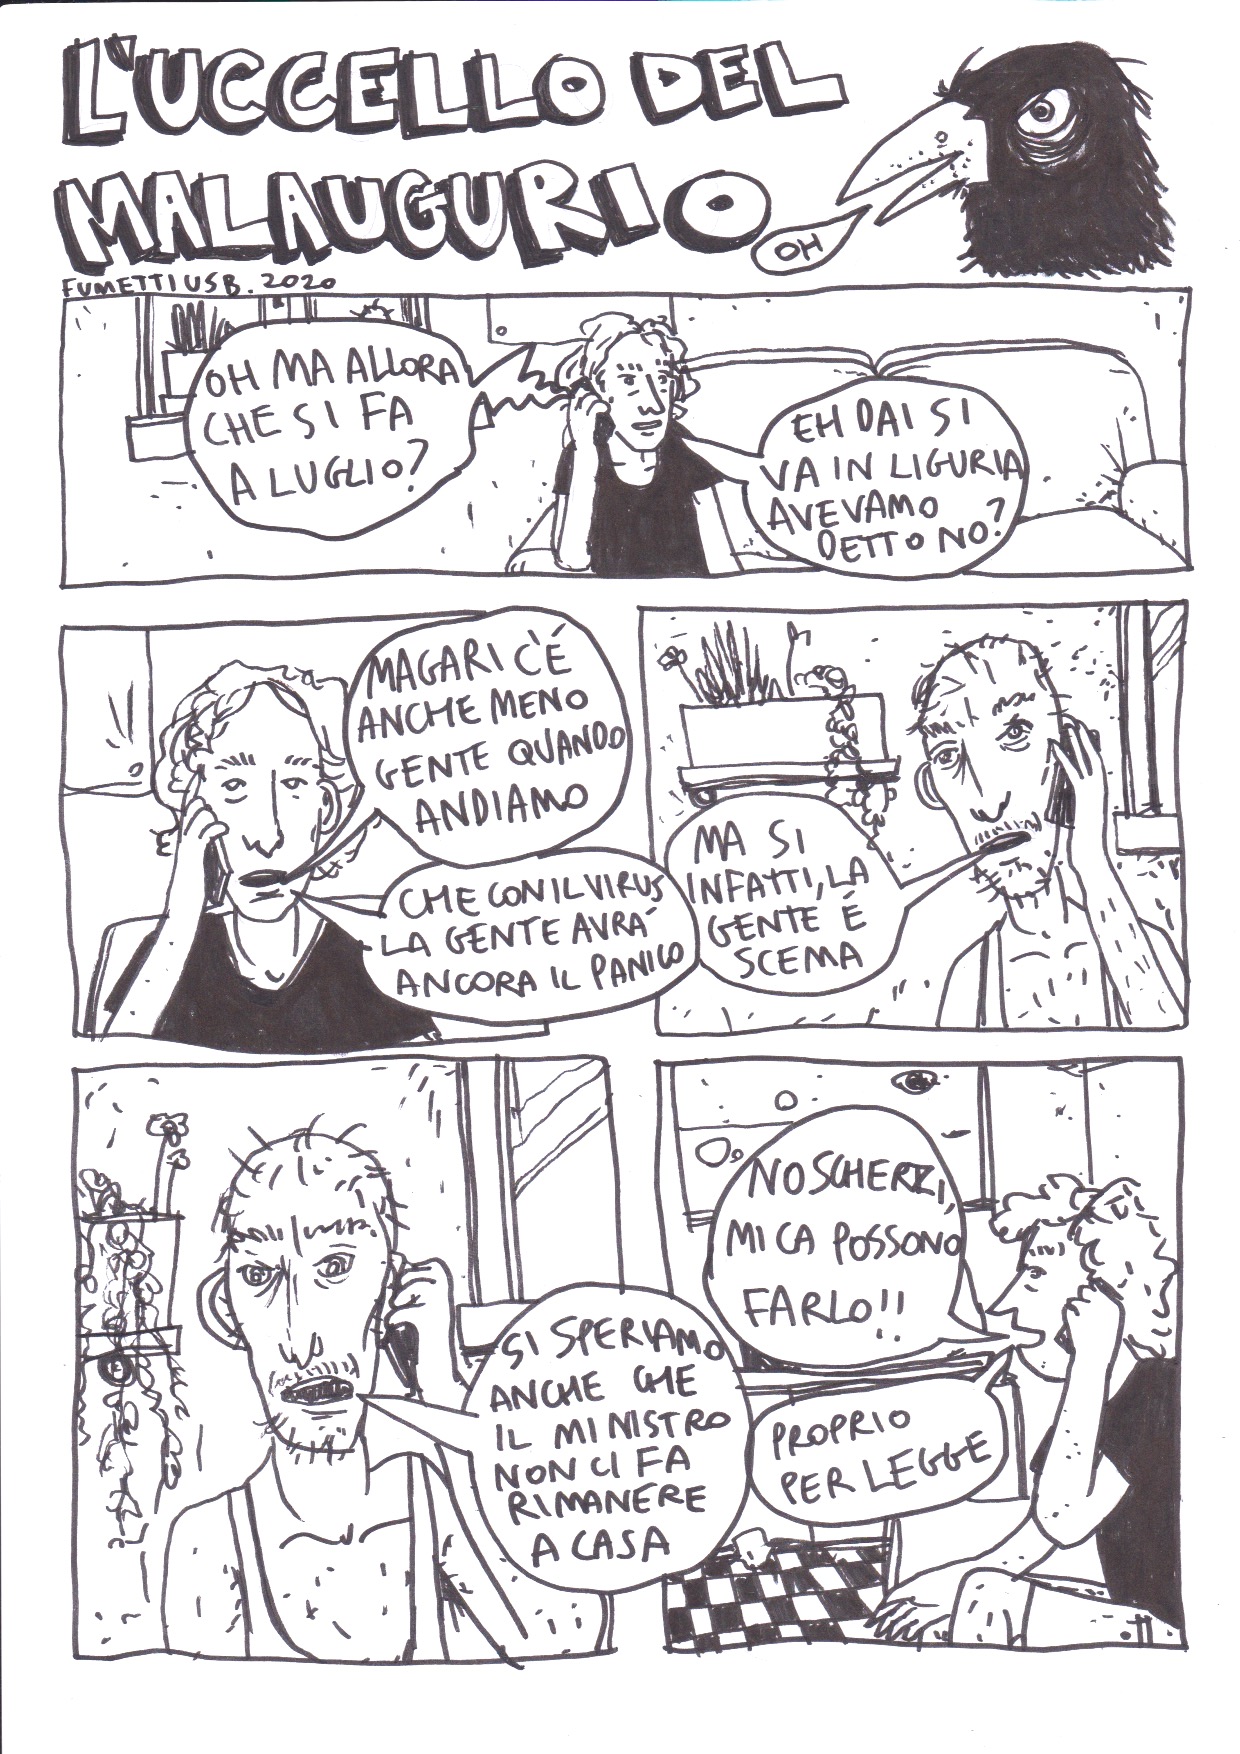 L'UCCELLO DEL
MALAUGURIO
OH
FUMETTIUSB. 2020
OH MA ALLORA
CHE SI FA
A LUGLIO?
EH DAI SI
VA IN LIGURIA
AVEVAMO
DETTO NO?
MAGARI C'É
ANCHE MENO
GENTE QUANDO
ANDIAMO
CHE CON IL VIRUS
LA GENTE AVRA'
ANCORA IL PANICO
MA SI
INFATTI, LA
GENTE É
SCEMA
SI SPERIAMO
ANCHE CHE
IL MINISTRO
NON CI FA
RIMANERE
A CASA
NO SCHERZI,
MICA POSSONO
FARLO!!
PROPRIO
PER LEGGE